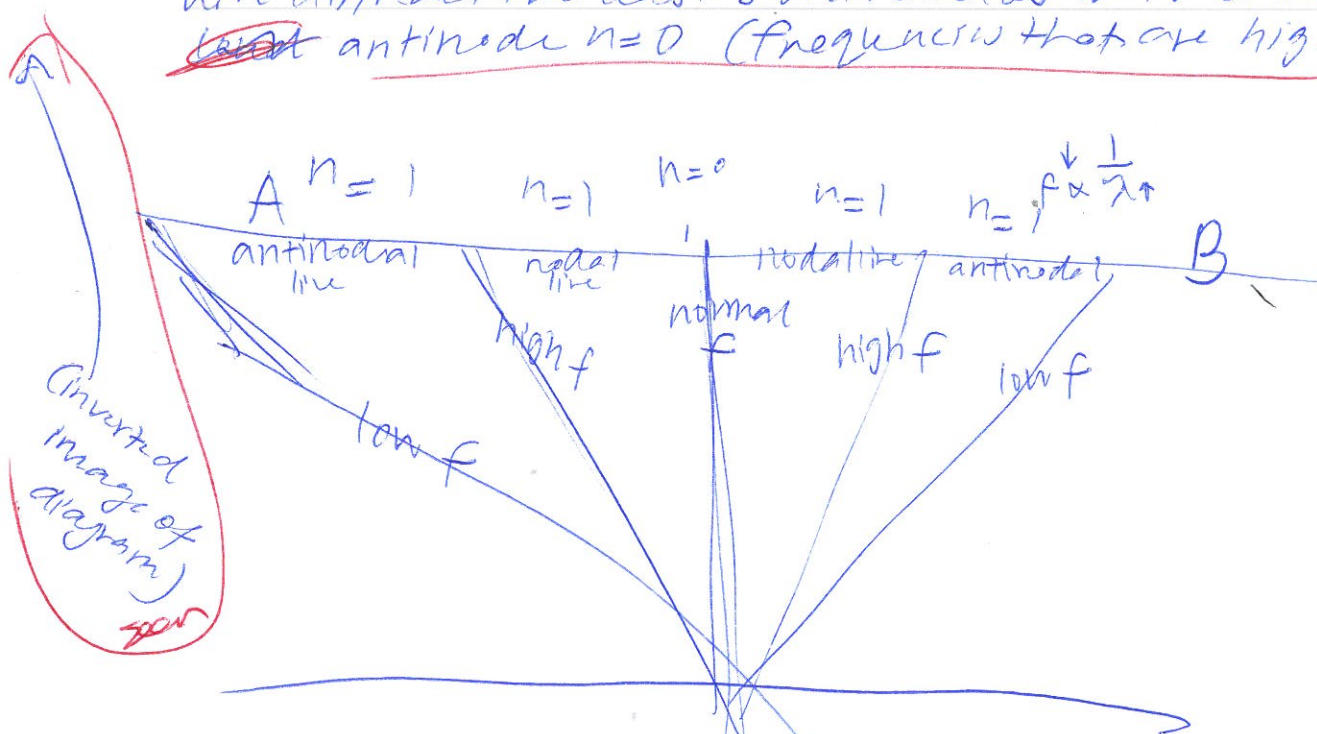 antinode n=0 (frequencies that are hig
A n=1 n=1 n=0 n=1 n=1 f↓ ∝ 1/λ↑ B
antinodal line nodal line nodal line antinodal
high f normal f high f low f
low f
(inverted image of diagram)